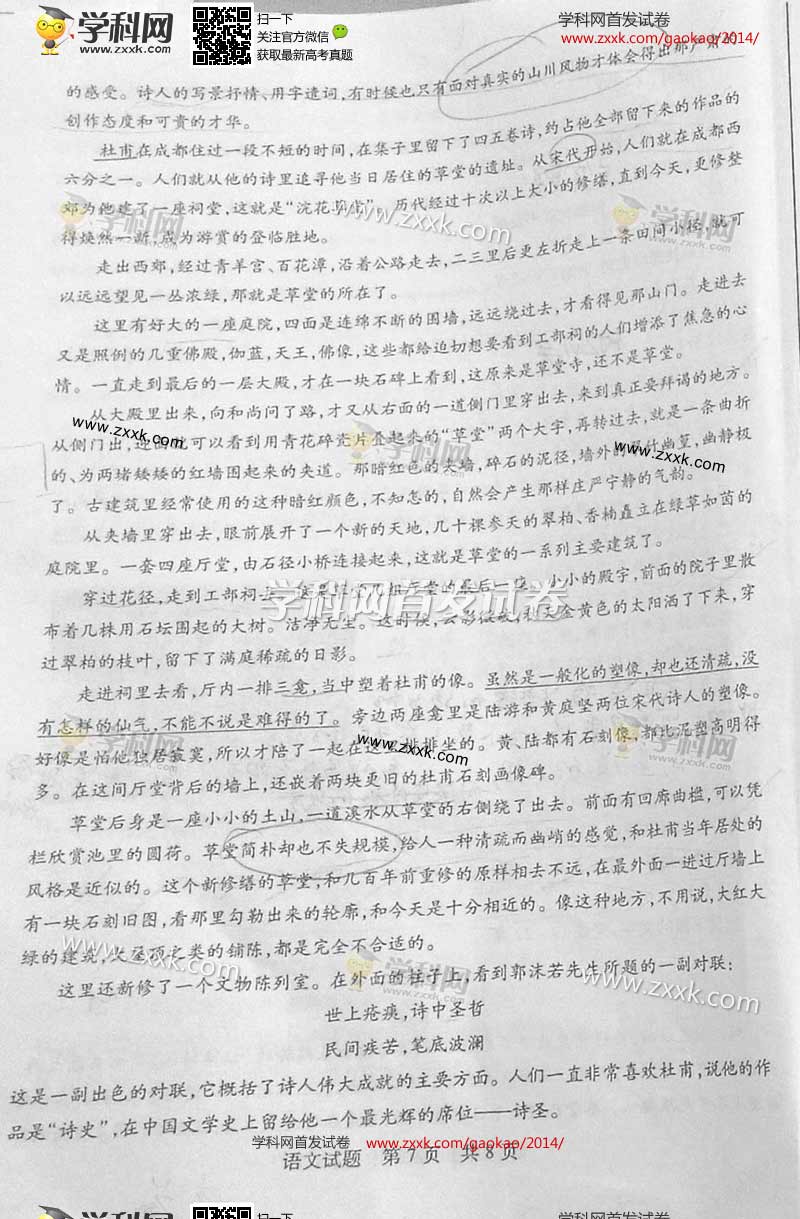 学科网 扫一下
www.zxxk.com 关注官方微信
获取最新高考真题
学科网首发试卷
www.zxxk.com/gaokao/2014/
的感受。诗人的写景抒情、用字遣词，有时候也只有面对真实的山川风物才体会得出那严肃的
创作态度和可贵的才华。
杜甫在成都住过一段不短的时间，在集子里留下了四五卷诗，约占他全部留下来的作品的
六分之一。人们就从他的诗里追寻他当日居住的草堂的遗址。从宋代开始，人们就在成都西
郊为他建了一座祠堂，这就是“浣花草堂”。历代经过十次以上大小的修缮，直到今天，更修整
得焕然一新，成为游赏的登临胜地。
走出西郊，经过青羊宫、百花潭，沿着公路走去，二三里后更左折走上一条田间小径，就可
以远远望见一丛浓绿，那就是草堂的所在了。
这里有好大的一座庭院，四面是连绵不断的围墙，远远绕过去，才看得见那山门。走进去
又是照例的几重佛殿，伽蓝，天王，佛像，这些都给迫切想要看到工部祠的人们增添了焦急的心
情。一直走到最后的一层大殿，才在一块石碑上看到，这原来是草堂寺，还不是草堂。
从大殿里出来，向和尚问了路，才又从右面的一道侧门里穿出去，来到真正要拜谒的地方。
从侧门出，迎面就可以看到用青花碎瓷片叠起来的“草堂”两个大字，再转过去，就是一条曲折
的、为两堵矮矮的红墙围起来的夹道。那暗红色的夹墙，碎石的泥径，墙外的翠竹幽篁，幽静极
了。古建筑里经常使用的这种暗红颜色，不知怎的，自然会产生那样庄严宁静的气韵。
从夹墙里穿出去，眼前展开了一个新的天地，几十棵参天的翠柏、香楠矗立在绿草如茵的
庭院里。一套四座厅堂，由石径小桥连接起来，这就是草堂的一系列主要建筑了。
穿过花径，走到工部祠去。这里是草堂的最后一座。小小的殿宇，前面的院子里散
布着几株用石坛围起的大树。洁净无尘。这时候，金黄色的太阳洒了下来，穿
过翠柏的枝叶，留下了满庭稀疏的日影。
走进祠里去看，厅内一排三龛，当中塑着杜甫的像。虽然是一般化的塑像，却也还清疏，没
有怎样的仙气，不能不说是难得的了。旁边两座龛里是陆游和黄庭坚两位宋代诗人的塑像。
好像是怕他独居寂寞，所以才陪了一起在这里排排坐的。黄、陆都有石刻像，都比泥塑高明得
多。在这间厅堂背后的墙上，还嵌着两块更旧的杜甫石刻画像碑。
草堂后身是一座小小的土山，一道溪水从草堂的右侧绕了出去。前面有回廊曲槛，可以凭
栏欣赏池里的圆荷。草堂简朴却也不失规模，给人一种清疏而幽峭的感觉，和杜甫当年居处的
风格是近似的。这个新修缮的草堂，和几百年前重修的原样相去不远，在最外面一进过厅墙上
有一块石刻旧图，看那里勾勒出来的轮廓，和今天是十分相近的。像这种地方，不用说，大红大
绿的建筑，大屋顶之类的铺陈，都是完全不合适的。
这里还新修了一个文物陈列室。在外面的柱子上，看到郭沫若先生所题的一副对联：
世上疮痍，诗中圣哲
民间疾苦，笔底波澜
这是一副出色的对联，它概括了诗人伟大成就的主要方面。人们一直非常喜欢杜甫，说他的作
品是“诗史”，在中国文学史上留给他一个最光辉的席位——诗圣。
学科网首发试卷 www.zxxk.com/gaokao/2014/
语文试题 第7页 共8页